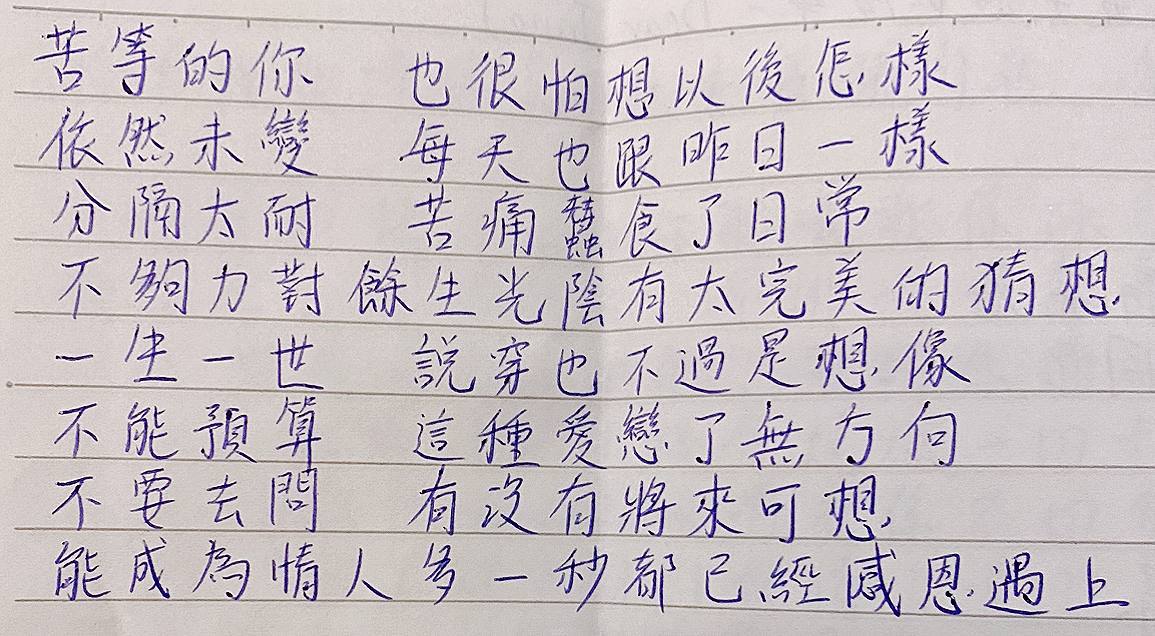 苦等的你 也很怕想以後怎樣
依然未變 每天也跟昨日一樣
分隔太耐 苦痛蠶食了日常
不夠力對餘生光陰有太完美的猜想
一生一世 說穿也不過是想像
不能預算 這種愛戀了無方向
不要去問 有沒有將來可想
能成為情人多一秒都已經感恩遇上